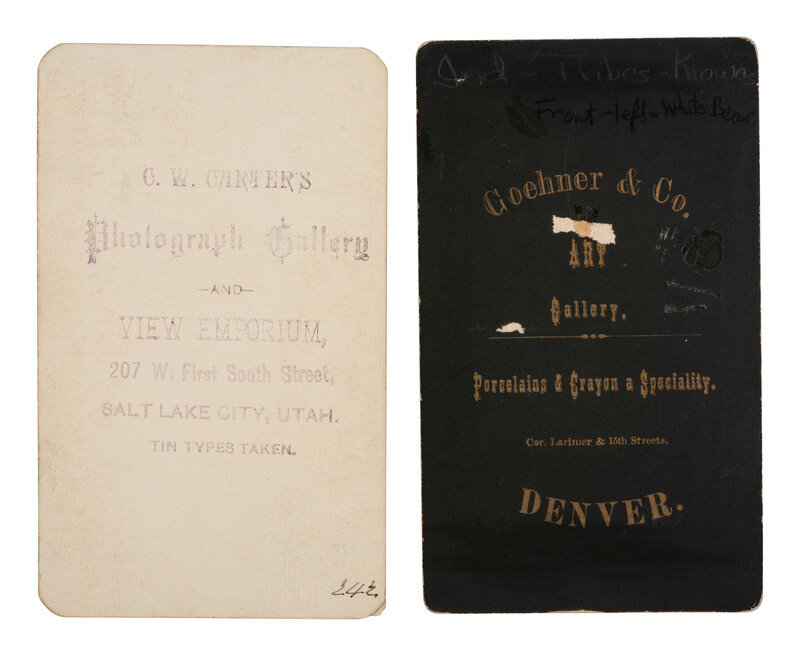 C. W. CARTER'S
Photograph Gallery
—AND—
VIEW EMPORIUM,
207 W. First South Street,
SALT LAKE CITY, UTAH.
TIN TYPES TAKEN.
242
Ind - Tribes Known
Front - left - White Bear
Goehner & Co.
ART
Gallery.
Porcelains & Crayon a Speciality.
Cor. Larimer & 15th Streets,
DENVER.